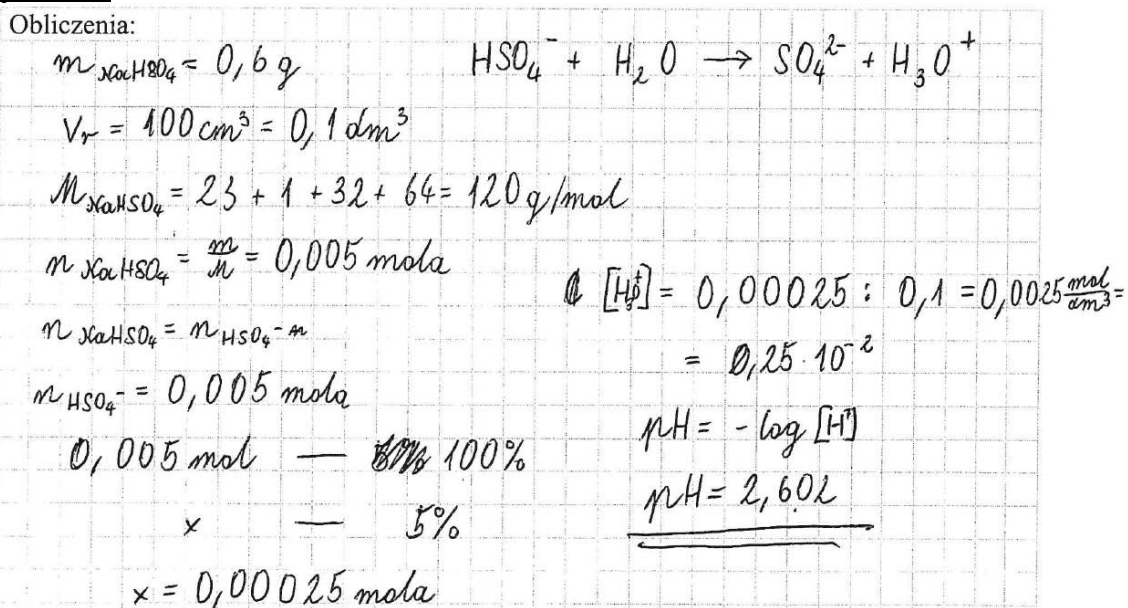 Obliczenia:
m NaHSO₄ = 0,6 g
HSO₄⁻ + H₂O → SO₄²⁻ + H₃O⁺
Vᵣ = 100 cm³ = 0,1 dm³
M NaHSO₄ = 23 + 1 + 32 + 64 = 120 g/mol
n NaHSO₄ = m/M = 0,005 mola
n NaHSO₄ = n HSO₄⁻
n HSO₄⁻ = 0,005 mola
0,005 mol — 100%
x — 5%
x = 0,00025 mola
[H₃O⁺] = 0,00025 : 0,1 = 0,0025 mol/dm³ =
= 0,25 · 10⁻²
pH = - log [H⁺]
pH = 2,602